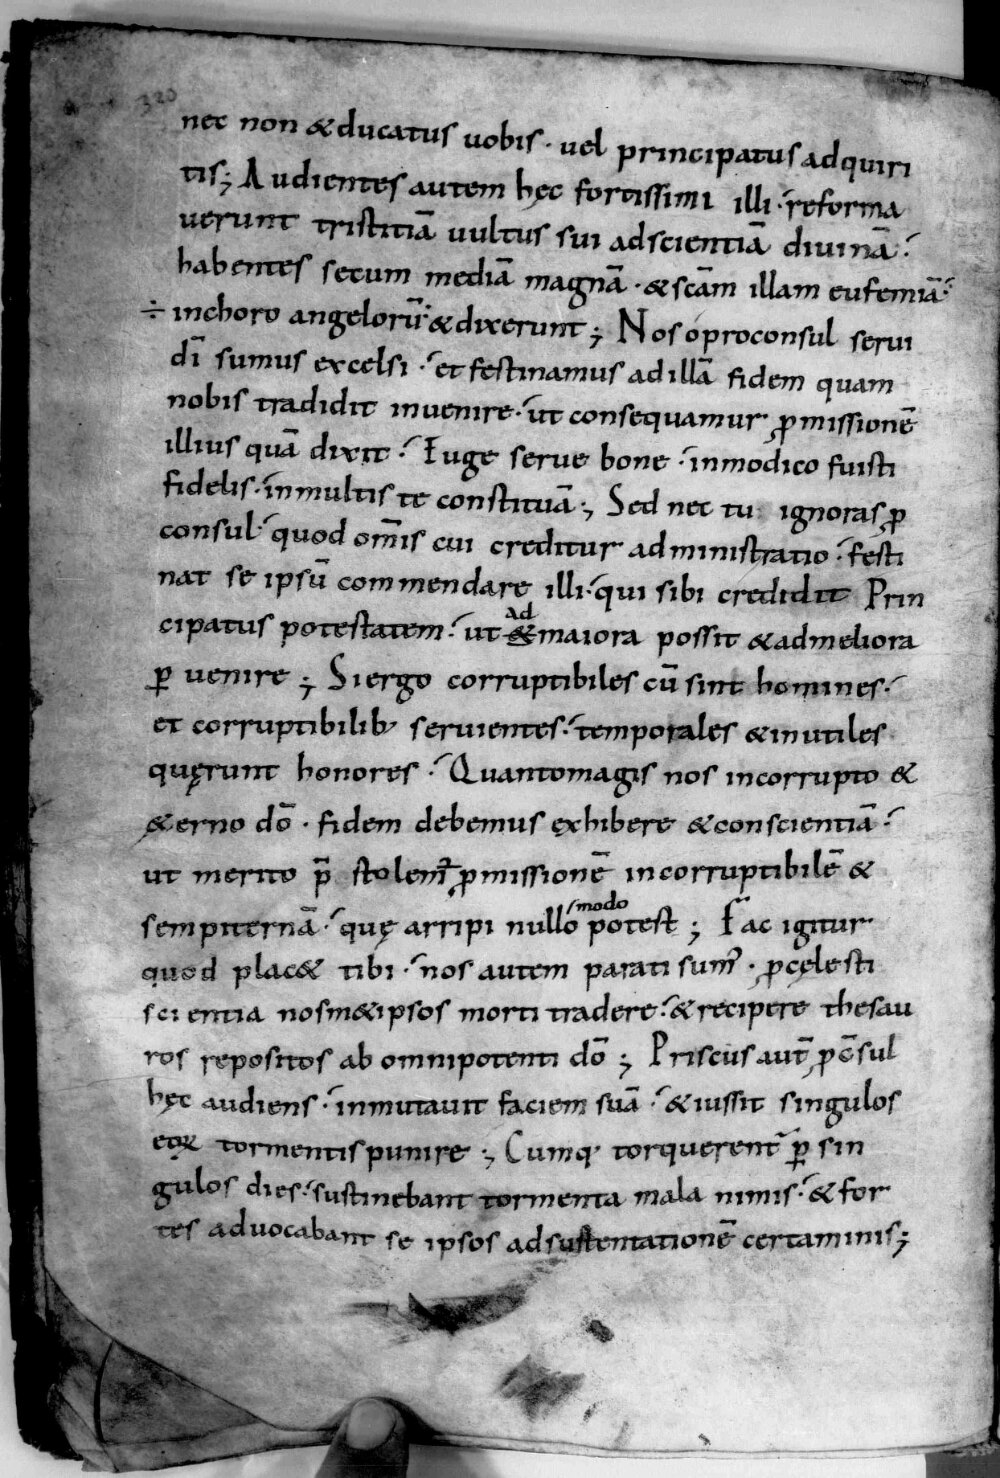 320
nec non &ducatus uobis · uel principatus adquiri
tis; Audientes autem hęc fortissimi illi · reforma
uerunt tristitiā uultus sui adscientiā diuinā ·
habentes secum mediā magnā · &scām illam eufemiā ·
÷ inchoro angelorū · &dixerunt ; Nos o proconsul serui
dī sumus excelsi · et festinamus adillā fidem quam
nobis tradidit inuenire · ut consequamur ꝓmissionē
illius quā dixit · Euge serue bone · inmodico fuisti
fidelis · inmultis te constituā ; Sed nec tu ignoras ꝓ
consul · quod om̄is cui creditur administratio · festi
nat se ipsū commendare illi · qui sibi credidit Prin
cipatus potestatem · ut & Ad maiora possit &admeliora
ꝑ uenire ; Siergo corruptibiles cū sint homines ·
et corruptibilib; seruientes · temporales &inutiles
quęrunt honores · Quantomagis nos incorrupto &
&erno dō · fidem debemus exhibere &conscientiā ·
ut merito p̄ stolem̄ ꝓmissionē incorruptibilē &
sempiternā · quę arripi nullo modo potest ; Fac igitur
quod plac& tibi · nos autem parati sum᾿ · ꝓcęlesti
scientia nosm&ipsos morti tradere · &recipere thesau
ros repositos ab omnipotenti dō ; Priscus aut̄ ꝓc̄sul
hęc audiens · inmutauit faciem suā · &iussit singulos
eoꝝ tormentis punire ; Cumq; torquerent᾿ ꝑ sin
gulos dies · sustinebant tormenta mala nimis · &for
tes aduocabant se ipsos adsustentationē certaminis ;